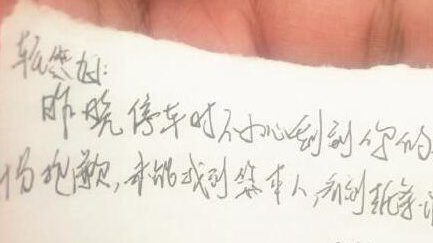 车主您好:
昨晚停车时不小心刮到你的
份抱歉,未能找到您本人,看到纸条